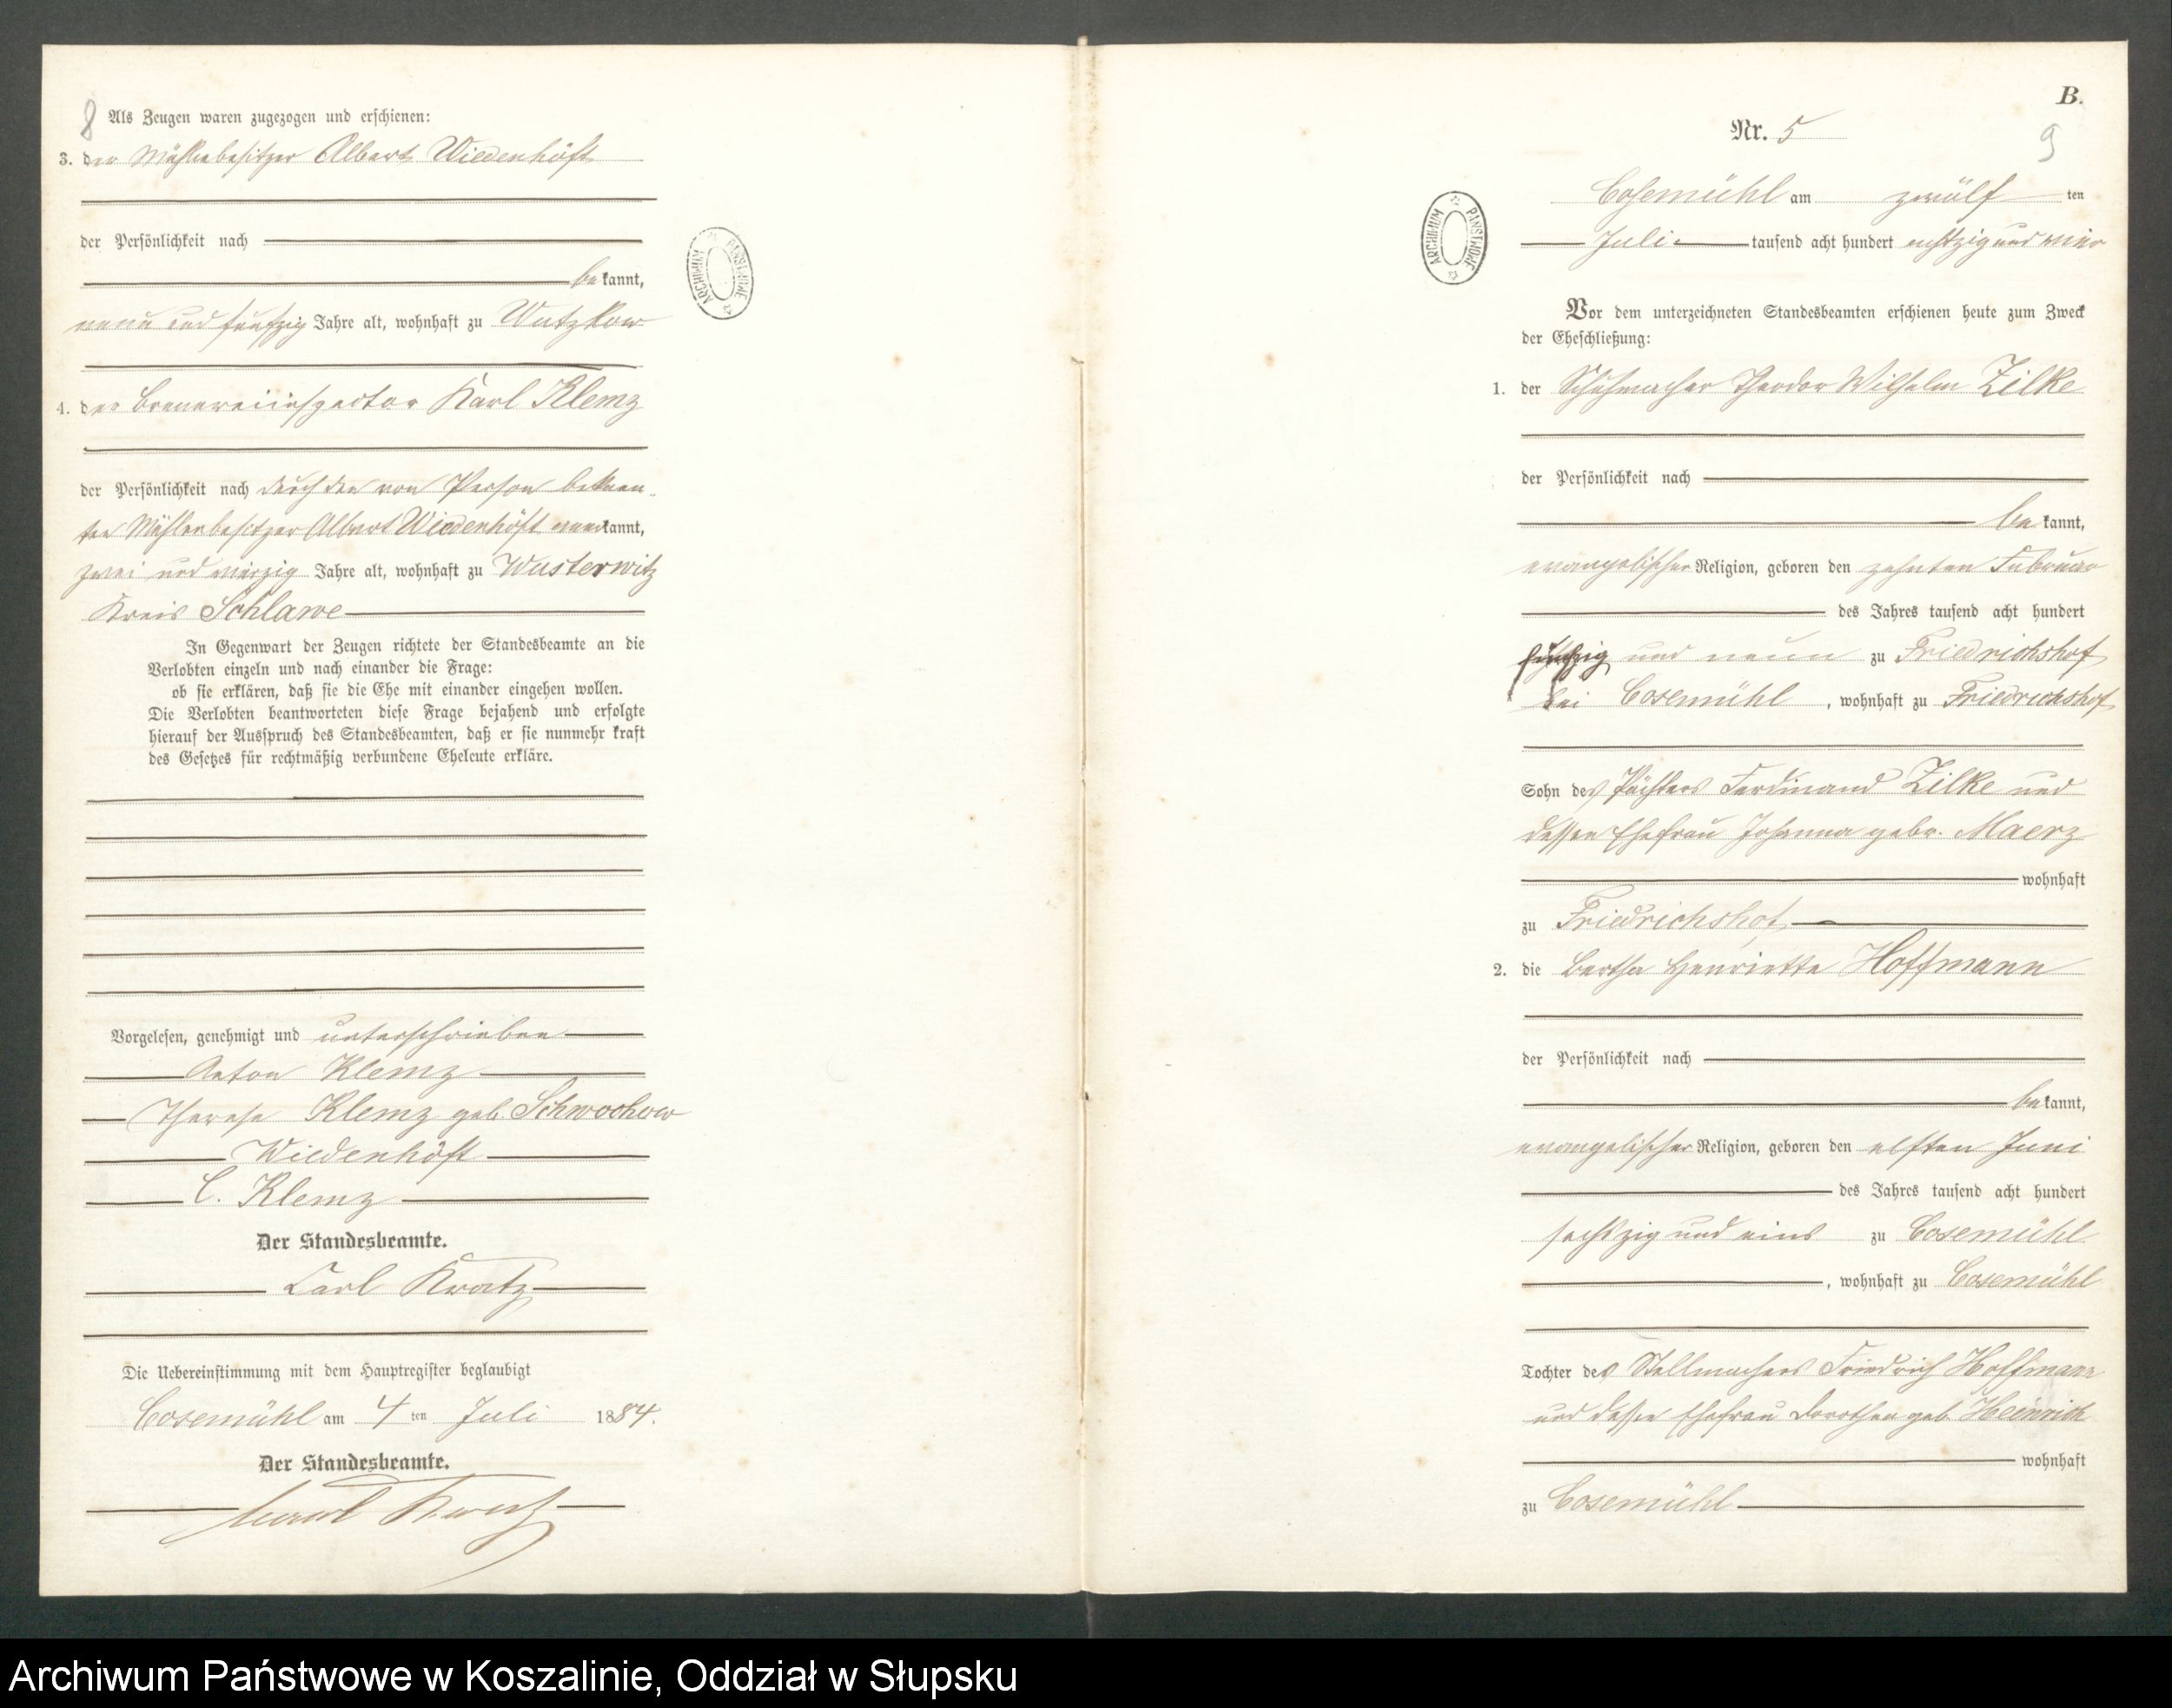 8
Als Zeugen waren zugezogen und erschienen:
3. der Mühlenbesitzer Albert Wiedenhöft
der Persönlichkeit nach
bekannt,
neun und fünfzig Jahre alt, wohnhaft zu Wutzkow
4. der Brennereiinspector Karl Klemz
der Persönlichkeit nach durch den von Person bekann-
ten Mühlenbesitzer Albert Wiedenhöft anerkannt,
zwei und vierzig Jahre alt, wohnhaft zu Wusterwitz
Kreis Schlawe
In Gegenwart der Zeugen richtete der Standesbeamte an die
Verlobten einzeln und nach einander die Frage:
ob sie erklären, daß sie die Ehe mit einander eingehen wollen.
Die Verlobten beantworteten diese Frage bejahend und erfolgte
hierauf der Ausspruch des Standesbeamten, daß er sie nunmehr kraft
des Gesetzes für rechtmäßig verbundene Eheleute erkläre.
Vorgelesen, genehmigt und unterschrieben
Anton Klemz
Therese Klemz geb. Schwochow
Wiedenhöft
C. Klemz
Der Standesbeamte.
Carl Kratz
Die Uebereinstimmung mit dem Hauptregister beglaubigt
Cosemühl am 4 ten Juli 1884.
Der Standesbeamte.
Carl Kratz
ARCHIWUM PAŃSTWOWE
B.
Nr. 5
9
Cosemühl am zwölf ten
Juli tausend acht hundert achtzig und vier
ARCHIWUM PAŃSTWOWE
Vor dem unterzeichneten Standesbeamten erschienen heute zum Zweck
der Eheschließung:
1. der Schuhmacher Theodor Wilhelm Zilke
der Persönlichkeit nach
bekannt,
evangelischer Religion, geboren den zehnten Februar
des Jahres tausend acht hundert
fünfzig und neun zu Friedrichshof
bei Cosemühl, wohnhaft zu Friedrichshof
Sohn des Pächters Ferdinand Zilke und
dessen Ehefrau Johanna gebr. Maerz
wohnhaft
zu Friedrichshof
2. die Bertha Henriette Hoffmann
der Persönlichkeit nach
bekannt,
evangelischer Religion, geboren den elften Juni
des Jahres tausend acht hundert
sechszig und eins zu Cosemühl
, wohnhaft zu Cosemühl
Tochter des Stellmachers Friedrich Hoffmann
und dessen Ehefrau Dorothea geb. Heinrich
wohnhaft
zu Cosemühl
Archiwum Państwowe w Koszalinie, Oddział w Słupsku